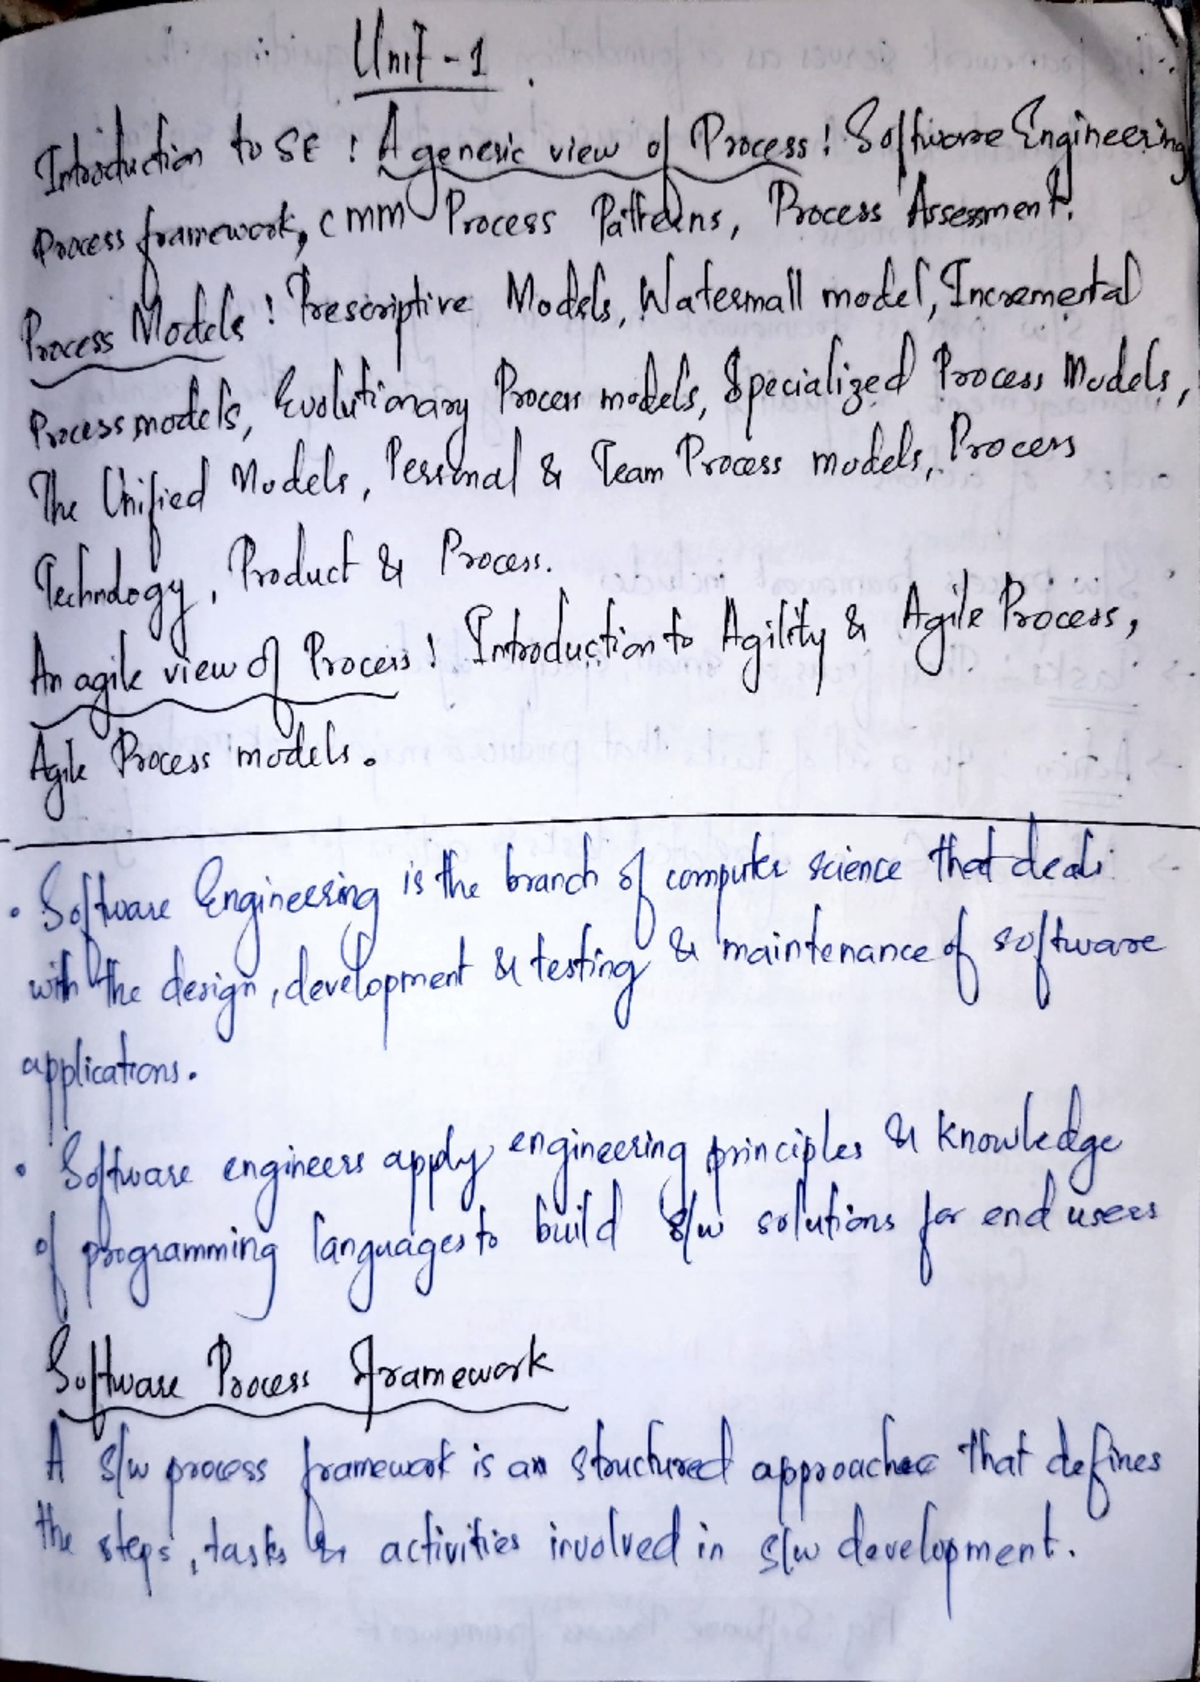 Unit - 1
Introduction to SE : A generic view of Process : Software Engineering
Process framework, CMM Process Patterns, Process Assessment.
Process Models : Prescriptive Models, Watermall model, Incremental
Process models, Evolutionary Process models, Specialized Process Models,
The Unified Models, Personal & Team Process models, Process
Technology, Product & Process.
An agile view of Process : Introduction to Agility & Agile Process,
Agile Process models.
• Software Engineering is the branch of computer science that deals
with the design, development & testing & maintenance of software
applications.
• Software engineers apply engineering principles & knowledge
of programming languages to build s/w solutions for end users
Software Process framework
A s/w process framework is an structured approaches that defines
the steps, tasks & activities involved in s/w development.